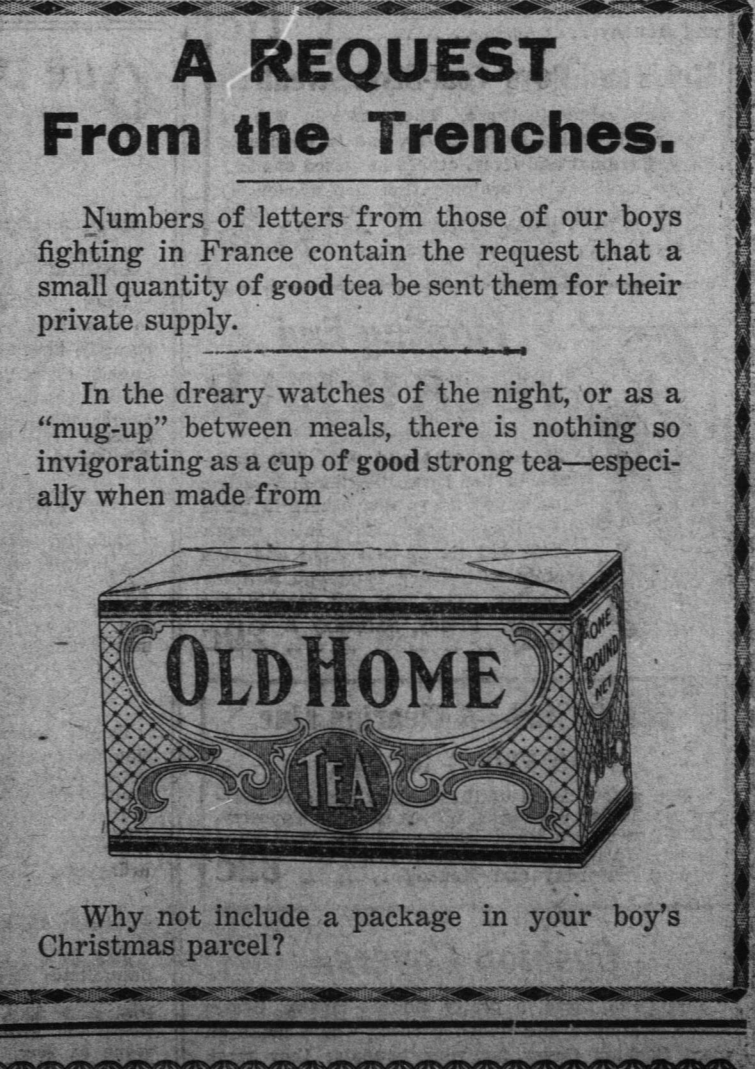 A REQUEST
From the Trenches.
Numbers of letters from those of our boys
fighting in France contain the request that a
small quantity of good tea be sent them for their
private supply.
In the dreary watches of the night, or as a
“mug-up” between meals, there is nothing so
invigorating as a cup of good strong tea—especi-
ally when made from
OLD HOME
TEA
ONE
POUND
NET
Why not include a package in your boy's
Christmas parcel?